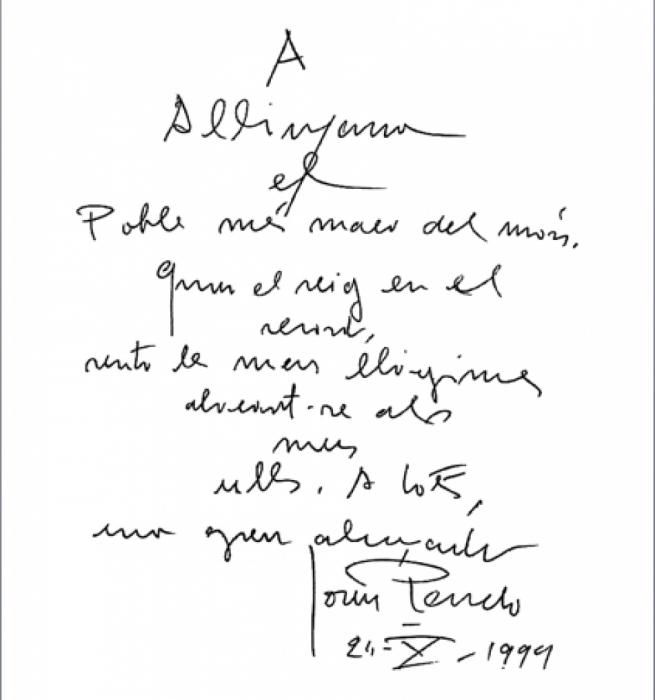 A
Allinyana
el
Poble més maco del món.
Quan el veig en el
record,
sento les meves llàgrimes
abocant-se als
meus
ulls. A tots,
una gran abraçada
X - 1999